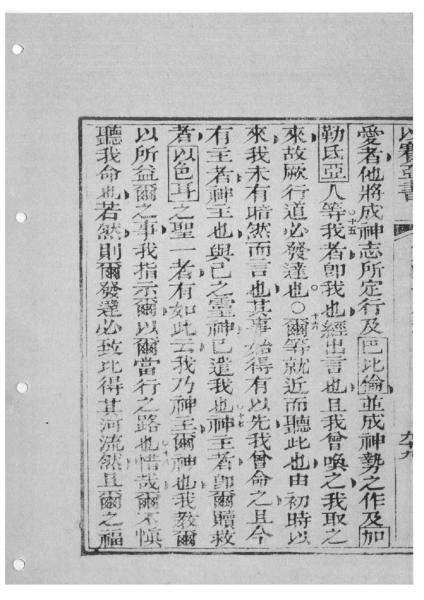 以賽亞書
愛者他將成神志所定行及巴比倫並成神勢之作及加
勒氐亞人等十五我者卽我也經出言也且我曾喚之我取之
來故厥行道必發達也○十六爾等就近而聽此也由初時以
來我未有暗然而言也其事始得有以先我曾命之且今
有主者神主也與己之靈神已遣我也十七神主者卽爾贖救
者以色耳之聖一者有如此云我乃神主爾神也我教爾
以所益爾之事我指示爾以爾當行之路也十八惜哉爾不慎
聽我命也若然則爾發達必致比得其河流然且爾之福